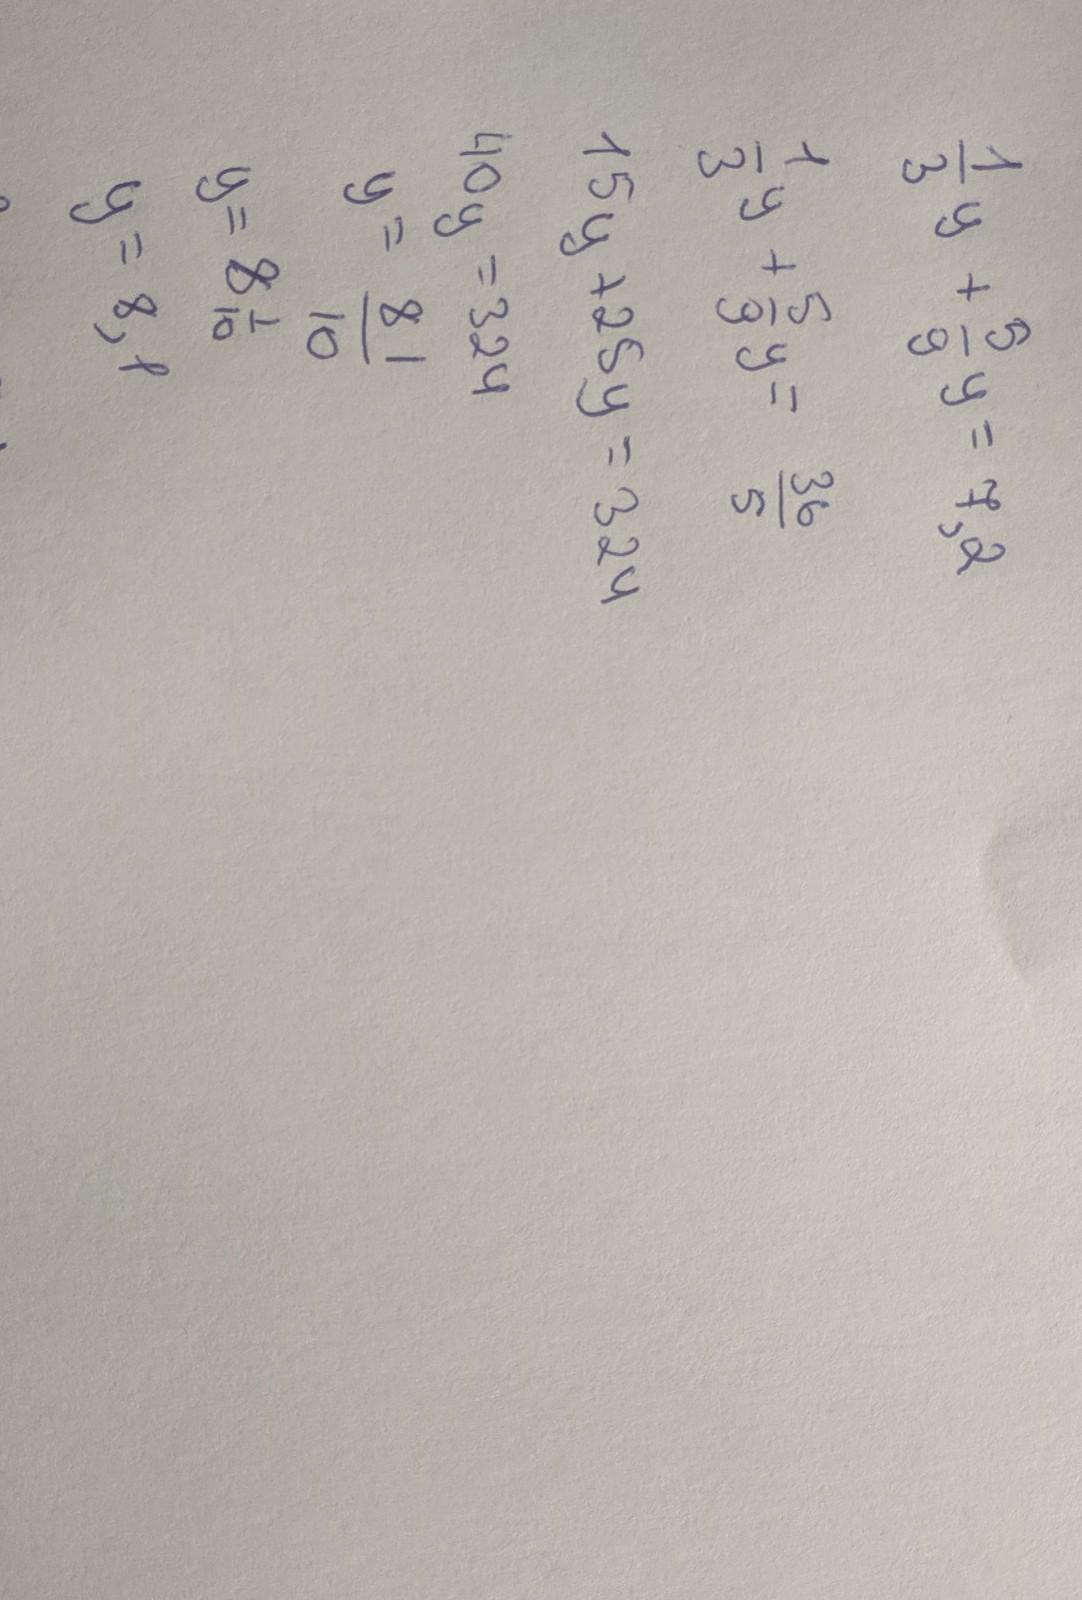 1/3 y + 5/9 y = 7,2
1/3 y + 5/9 y = 36/5
15y + 25y = 324
40y = 324
y = 81/10
y = 8 1/10
y = 8,1